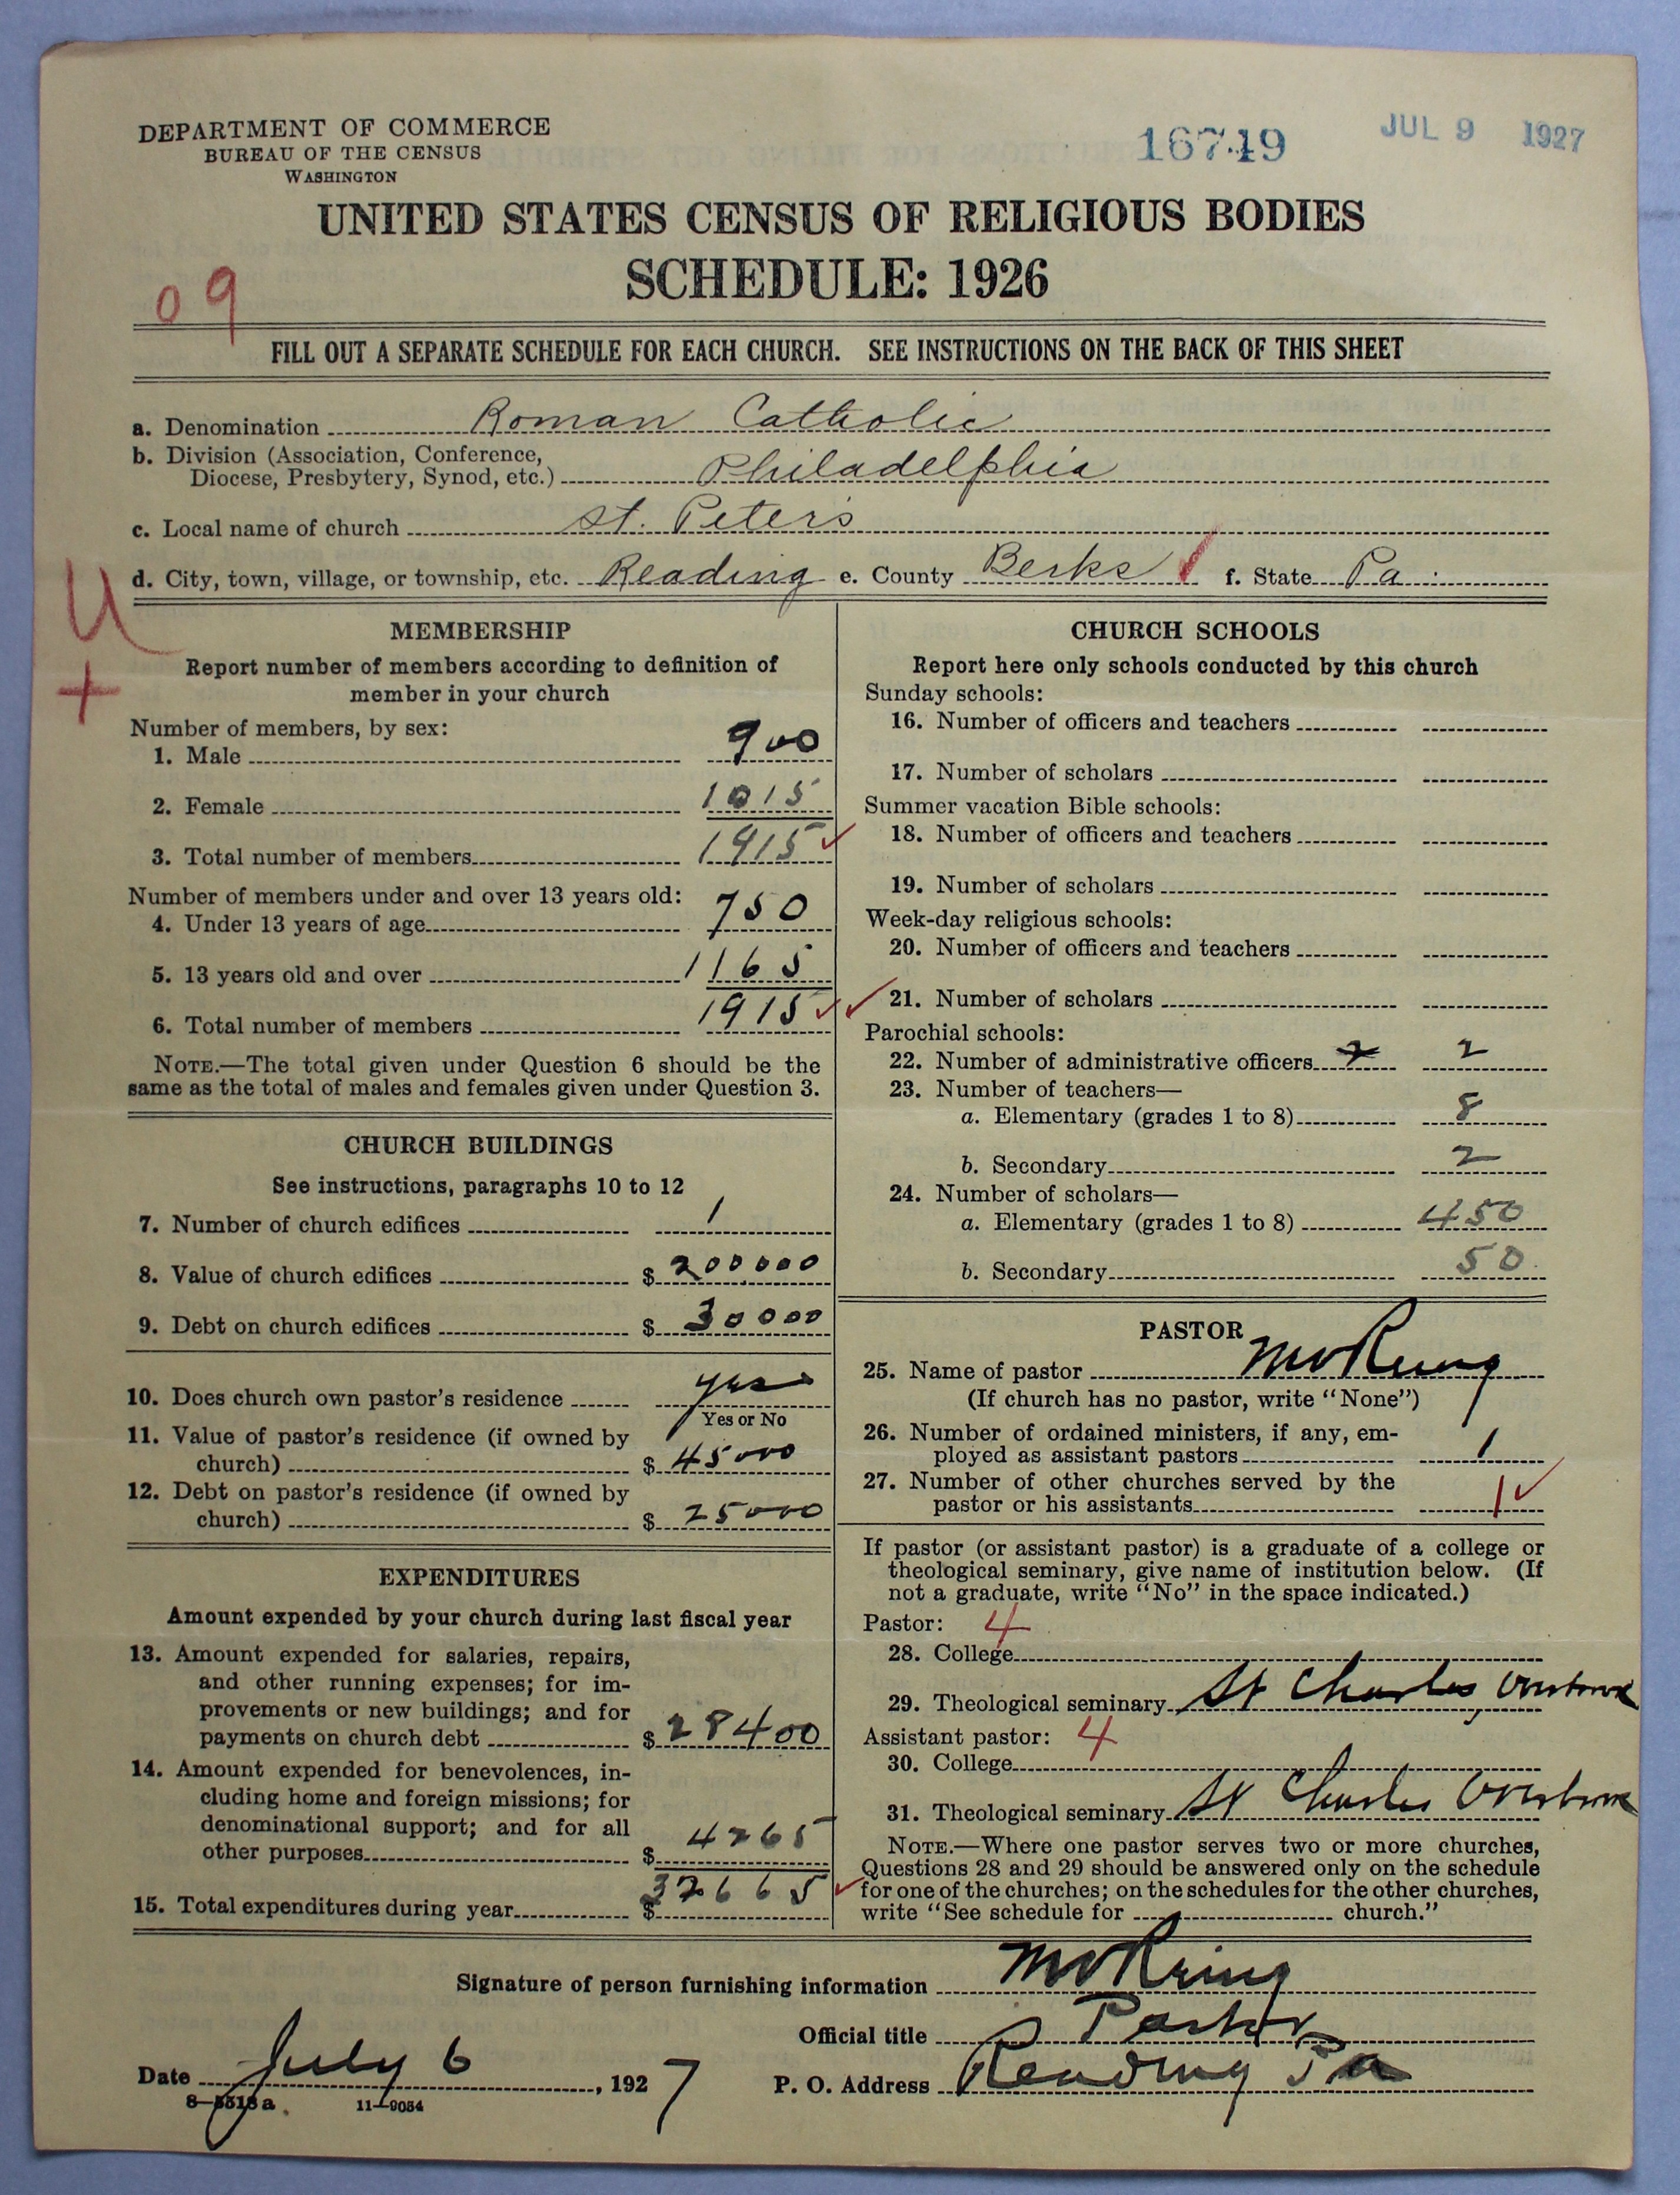 DEPARTMENT OF COMMERCE
BUREAU OF THE CENSUS
WASHINGTON
16749
JUL 9 1927
UNITED STATES CENSUS OF RELIGIOUS BODIES
SCHEDULE: 1926
09
FILL OUT A SEPARATE SCHEDULE FOR EACH CHURCH. SEE INSTRUCTIONS ON THE BACK OF THIS SHEET
a. Denomination Roman Catholic
b. Division (Association, Conference,
Diocese, Presbytery, Synod, etc.) Philadelphia
c. Local name of church St. Peter's
d. City, town, village, or township, etc. Reading e. County Berks f. State Pa.
U
+
MEMBERSHIP
Report number of members according to definition of
member in your church
Number of members, by sex:
1. Male 900
2. Female 1015
3. Total number of members 1915
Number of members under and over 13 years old:
4. Under 13 years of age 750
5. 13 years old and over 1165
6. Total number of members 1915
NOTE.—The total given under Question 6 should be the
same as the total of males and females given under Question 3.
CHURCH BUILDINGS
See instructions, paragraphs 10 to 12
7. Number of church edifices 1
8. Value of church edifices $ 200000
9. Debt on church edifices $ 30000
10. Does church own pastor's residence yes
Yes or No
11. Value of pastor's residence (if owned by
church) $ 45000
12. Debt on pastor's residence (if owned by
church) $ 25000
EXPENDITURES
Amount expended by your church during last fiscal year
13. Amount expended for salaries, repairs,
and other running expenses; for im-
provements or new buildings; and for
payments on church debt $ 28400
14. Amount expended for benevolences, in-
cluding home and foreign missions; for
denominational support; and for all
other purposes $ 4265
15. Total expenditures during year $ 32665
CHURCH SCHOOLS
Report here only schools conducted by this church
Sunday schools:
16. Number of officers and teachers
17. Number of scholars
Summer vacation Bible schools:
18. Number of officers and teachers
19. Number of scholars
Week-day religious schools:
20. Number of officers and teachers
21. Number of scholars
Parochial schools:
22. Number of administrative officers 2
23. Number of teachers—
a. Elementary (grades 1 to 8) 8
b. Secondary 2
24. Number of scholars—
a. Elementary (grades 1 to 8) 450
b. Secondary 50
PASTOR
25. Name of pastor
(If church has no pastor, write "None")
26. Number of ordained ministers, if any, em-
ployed as assistant pastors 1
27. Number of other churches served by the
pastor or his assistants 1
If pastor (or assistant pastor) is a graduate of a college or
theological seminary, give name of institution below. (If
not a graduate, write "No" in the space indicated.)
Pastor: 4
28. College
29. Theological seminary St Charles Overbrook
Assistant pastor: 4
30. College
31. Theological seminary St Charles Overbrook
NOTE.—Where one pastor serves two or more churches,
Questions 28 and 29 should be answered only on the schedule
for one of the churches; on the schedules for the other churches,
write "See schedule for church."
Signature of person furnishing information
Official title Pastor
Date July 6, 1927
P. O. Address Reading Pa
8—5518a
11—9054